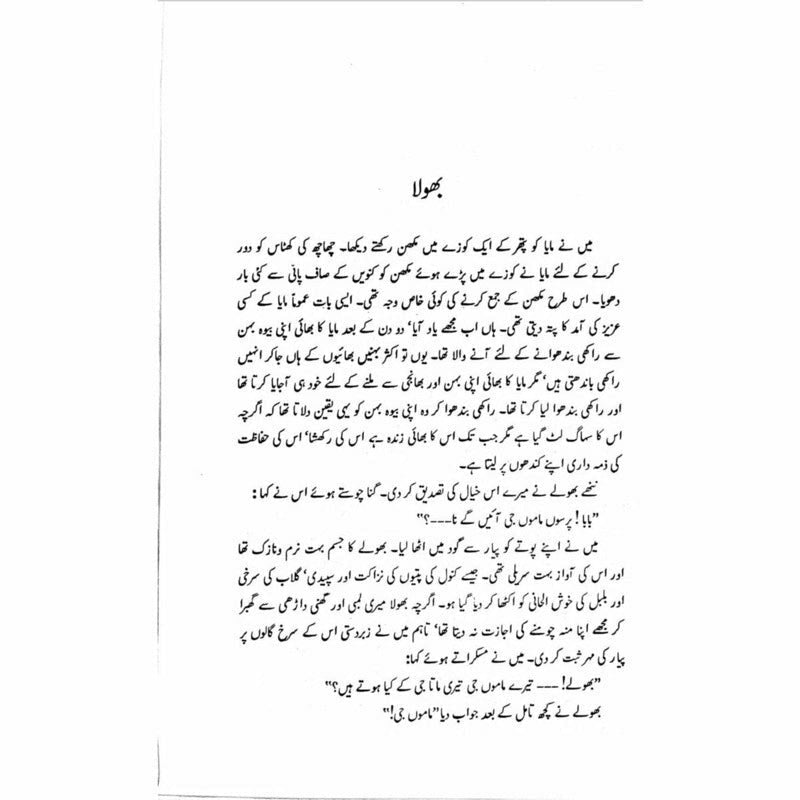 بھولا
میں نے مایا کو پتھر کے ایک کوزے میں مکھن رکھتے دیکھا۔ چھاچھ کی کھٹاس کو دور
کرنے کے لئے مایا نے کوزے میں پڑے ہوئے مکھن کو کنویں کے صاف پانی سے کئی بار
دھویا۔ اس طرح مکھن کے جمع کرنے کی کوئی خاص وجہ تھی۔ ایسی بات عموماً مایا کے کسی
عزیز کی آمد کا پتہ دیتی تھی۔ ہاں اب مجھے یاد آیا‘ دو دن کے بعد مایا کا بھائی اپنی بیوہ بہن
سے راکھی بندھوانے کے لئے آنے والا تھا۔ یوں تو اکثر بہنیں بھائیوں کے ہاں جاکر انہیں
راکھی باندھتی ہیں‘ مگر مایا کا بھائی اپنی بہن اور بھانجی سے ملنے کے لئے خود ہی آجایا کرتا تھا
اور راکھی بندھوا لیا کرتا تھا۔ راکھی بندھوا کر وہ اپنی بیوہ بہن کو یہی یقین دلاتا تھا کہ اگرچہ
اس کا سہاگ لٹ گیا ہے مگر جب تک اس کا بھائی زندہ ہے اس کی رکھشا‘ اس کی حفاظت
کی ذمہ داری اپنے کندھوں پر لیتا ہے۔
ننھے بھولے نے میرے اس خیال کی تصدیق کر دی۔ گنا چوستے ہوئے اس نے کہا:
”بابا! پرسوں ماموں جی آئیں گے نا---؟“
میں نے اپنے پوتے کو پیار سے گود میں اٹھا لیا۔ بھولے کا جسم بہت نرم ونازک تھا
اور اس کی آواز بہت سریلی تھی۔ جیسے کنول کی پتیوں کی نزاکت اور سپیدی‘ گلاب کی سرخی
اور بلبل کی خوش الحانی کو اکٹھا کر دیا گیا ہو۔ اگرچہ بھولا میری لمبی اور گھنی داڑھی سے گھبرا
کر مجھے اپنا منہ چومنے کی اجازت نہ دیتا تھا‘ تاہم میں نے زبردستی اس کے سرخ گالوں پر
پیار کی مہر ثبت کر دی۔ میں نے مسکراتے ہوئے کہا:
”بھولے! --- تیرے ماموں جی تیری ماتا جی کے کیا ہوتے ہیں؟“
بھولے نے کچھ تامل کے بعد جواب دیا ”ماموں جی!“